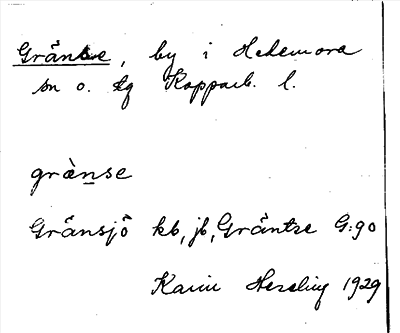 Gränse, by i Hedemora
sn o. tg Kopparb. l.
grànse
Gränsjö kb, jb, Gräntze G:90
Karin Hessling 1929